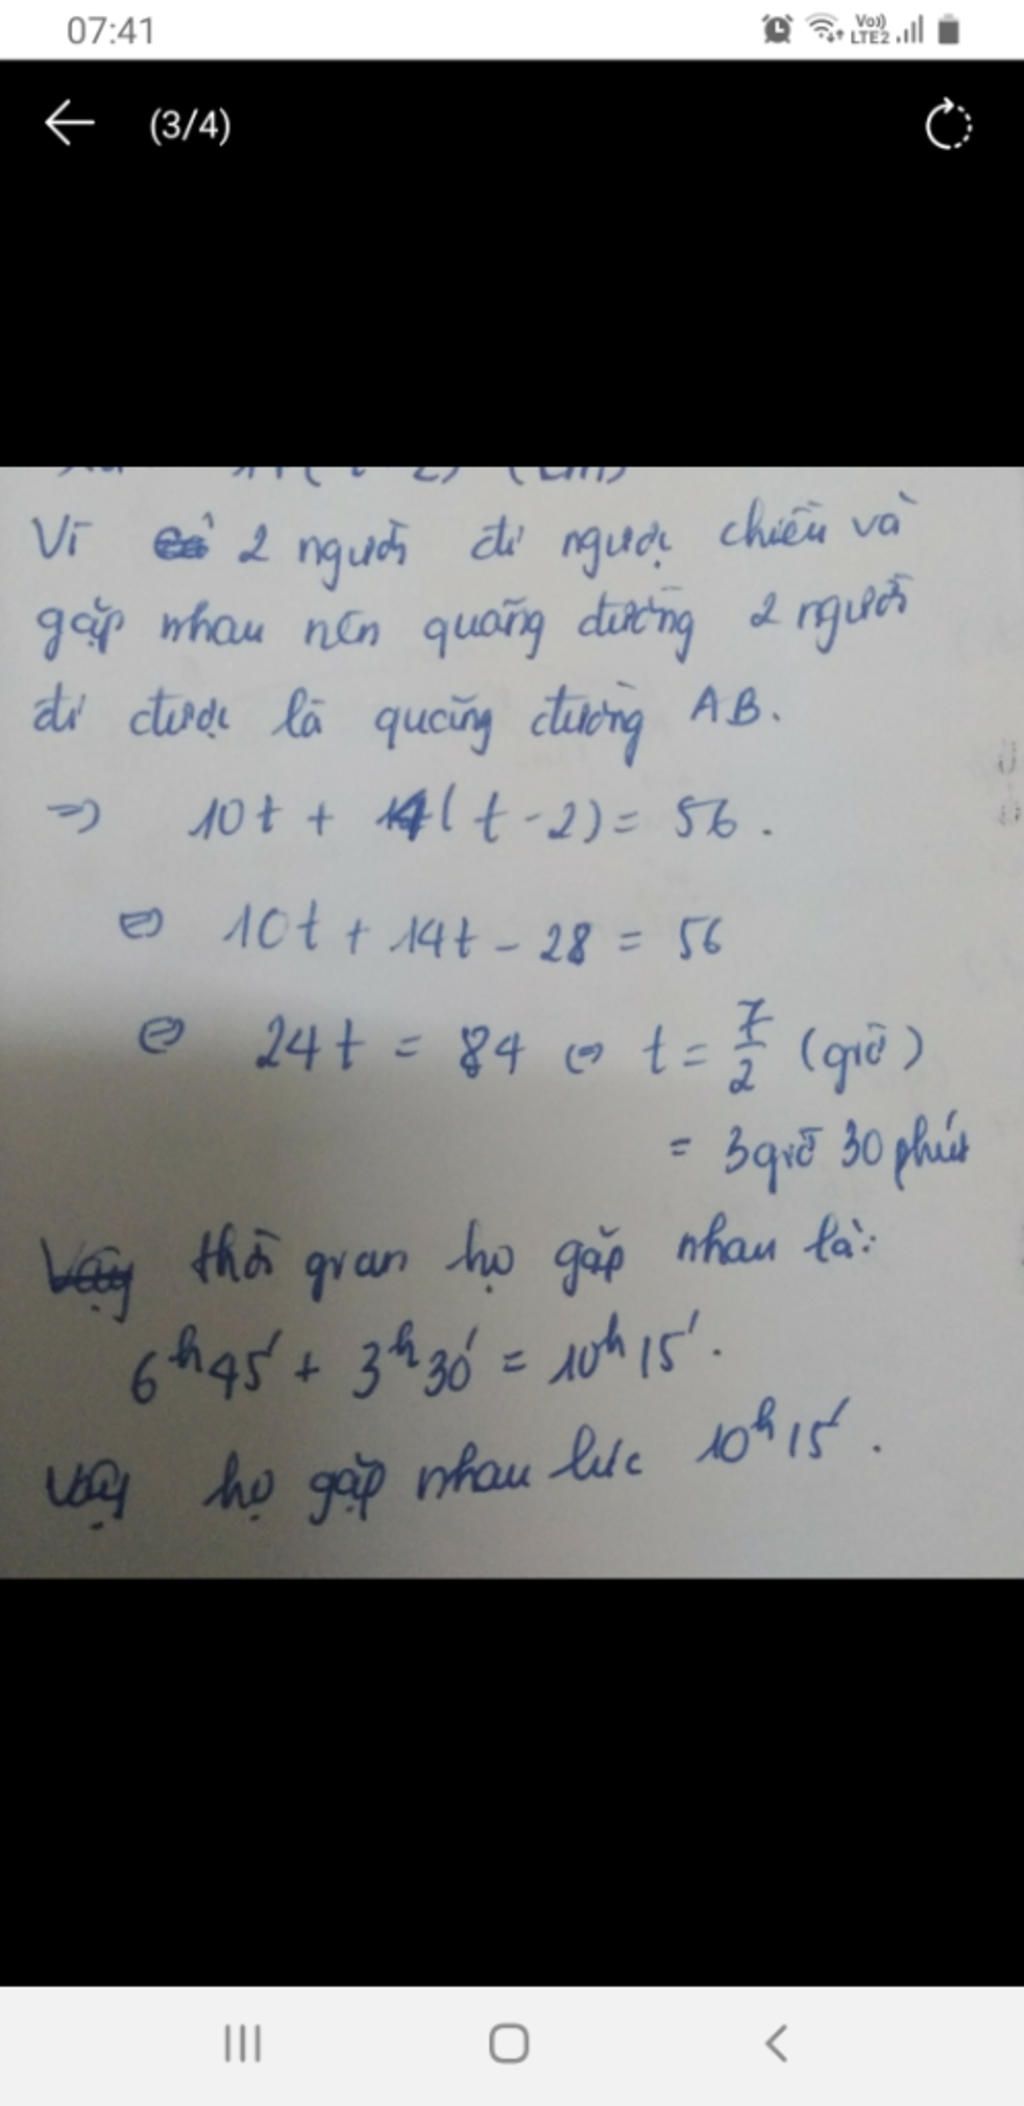 07:41
Vo))
LTE2
(3/4)
Vì 2 người đi ngược chiều và
gặp nhau nên quãng đường 2 người
đi được là quãng đường AB.
⇒ 10t + 14(t - 2) = 56.
⇔ 10t + 14t - 28 = 56
⇔ 24t = 84 ⇔ t = 7/2 (giờ)
= 3 giờ 30 phút
Vậy thời gian họ gặp nhau là:
6h45' + 3h30' = 10h15'.
Vậy họ gặp nhau lúc 10h15'.